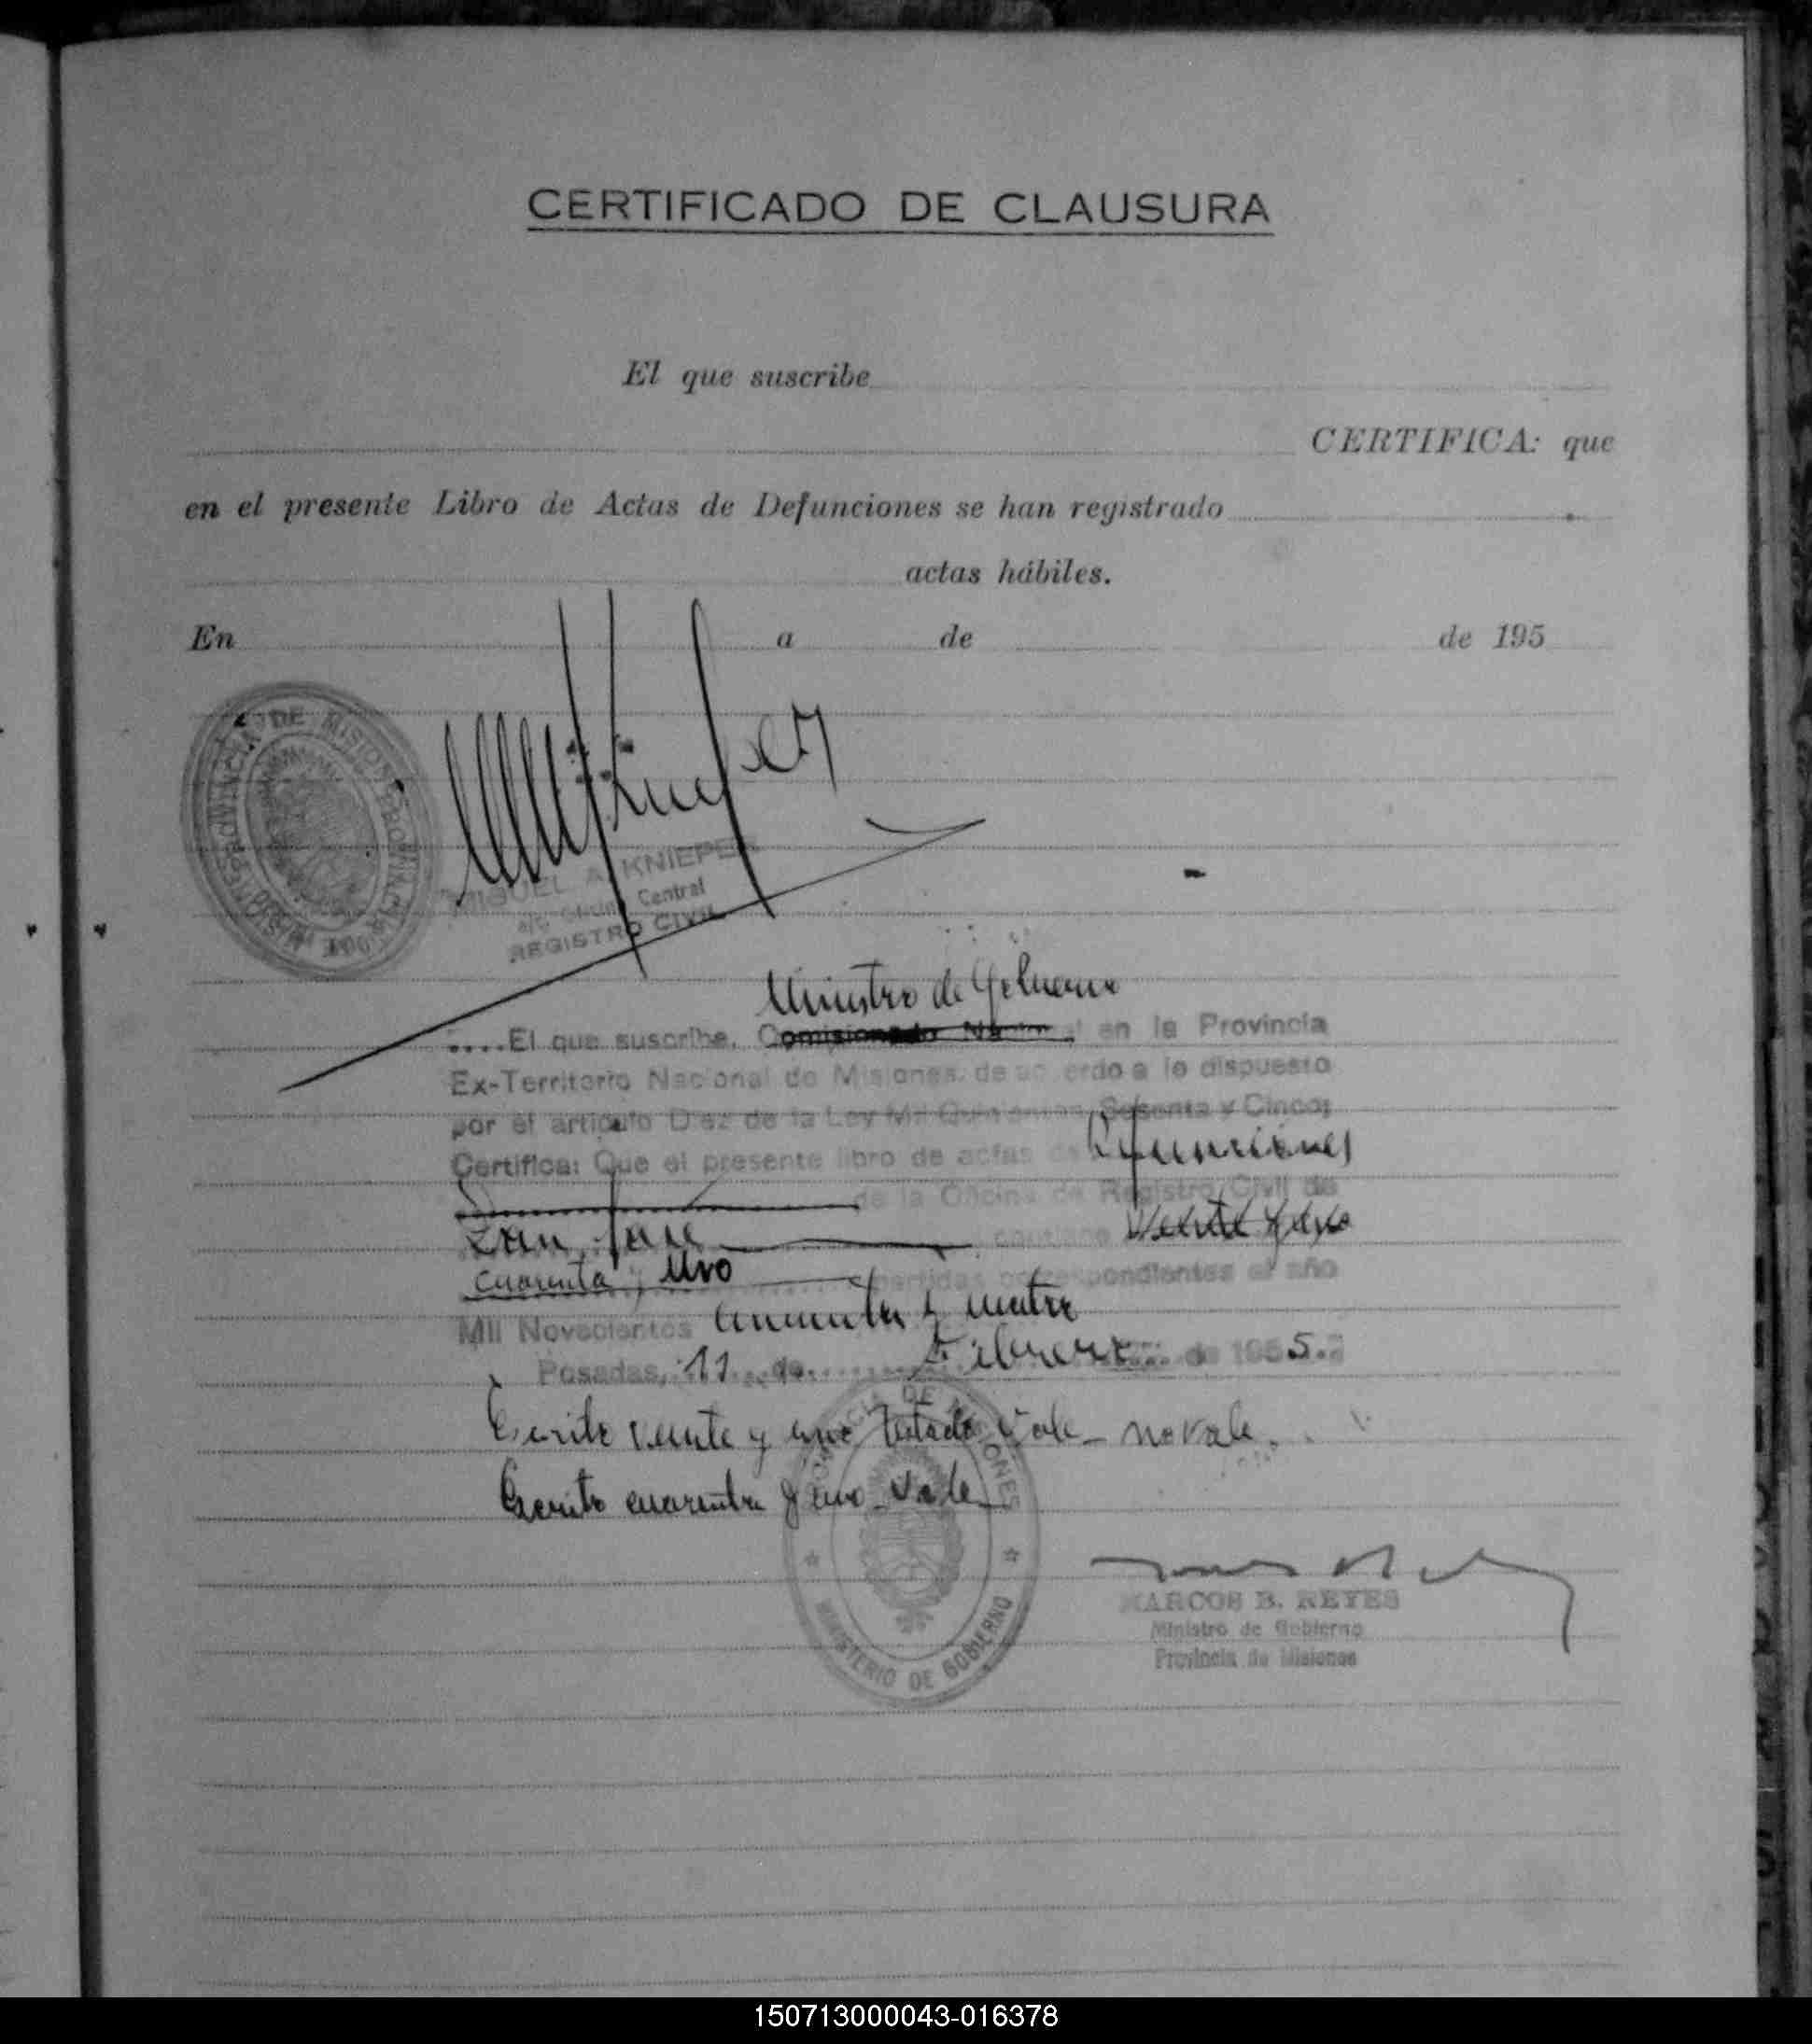 CERTIFICADO DE CLAUSURA
El que suscribe
CERTIFICA: que
en el presente Libro de Actas de Defunciones se han registrado
actas hábiles.
En a de de 195
PROVINCIA DE MISIONES
MIGUEL A. KNIEPER
a/c Oficina Central
REGISTRO CIVIL
Ministro de Gobierno
....El que suscribe, Comisionado Nacional en la Provincia
Ex-Territorio Nacional de Misiones, de acuerdo a lo dispuesto
por el artículo Diez de la Ley Mil Quinientos Sesenta y Cinco;
Certifica: Que el presente libro de actas de Defunciones
de la Oficina de Registro Civil de
San José contiene veinte y uno
cuarenta y uno partidas correspondientes al año
Mil Novecientos cincuenta y cuatro
Posadas, 11 de Febrero de 1955.
Escrito veinte y uno testado vale - no vale.
Escrito cuarenta y uno - vale
PROVINCIA DE MISIONES
MINISTERIO DE GOBIERNO
MARCOS B. REYES
Ministro de Gobierno
Provincia de Misiones
150713000043-016378